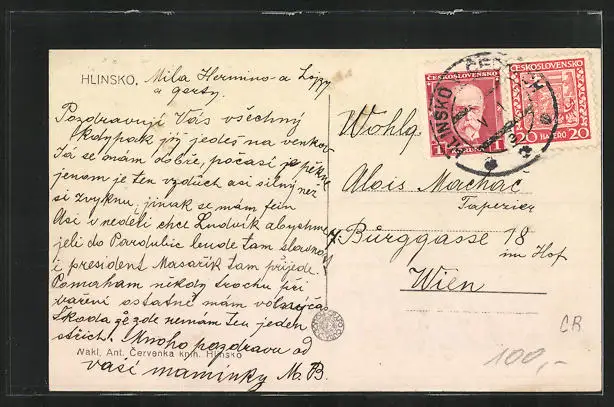 HLINSKO.
Mila Hermino a
a
Pozdravuji Vás všechny
kdypak jedeš na venkov
Já se mám dobře, počasí je pěkne
jenom je ten vzduch asi silný než
si zvyknu, jinak se mám fein
Asi v neděli chce Ludvík abychme
jeli do Pardubic bude tam slavnost
i president Masařik tam přijede.
Pomaham někdy trochu při
vaření ostatně mám
Škoda že zde nemám ten jeden
Mnoho pozdravu od
Nakl. Ant. Červenka knih. Hlinsko
vaší maminky M. B.
ČESKOSLOVENSKO
1 KORUNA 1
ČESKOSLOVENSKO
20 HALÉŘŮ 20
HLINSKO
Wohlg.
Alois Machač
Tapezier
Burggasse 18
im Hof
Wien
CR
100,-